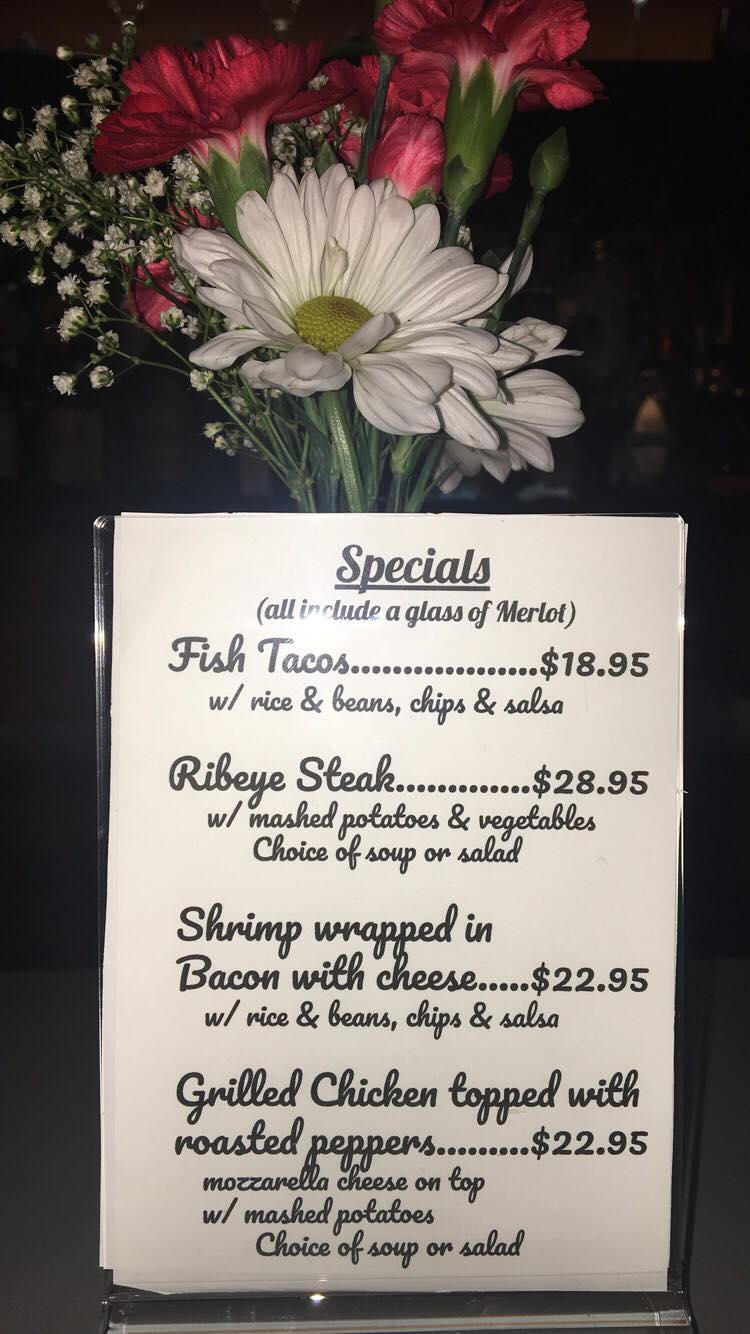 Specials
(all include a glass of Merlot)
Fish Tacos...................$18.95
w/ rice & beans, chips & salsa
Ribeye Steak.............$28.95
w/ mashed potatoes & vegetables
Choice of soup or salad
Shrimp wrapped in
Bacon with cheese.....$22.95
w/ rice & beans, chips & salsa
Grilled Chicken topped with
roasted peppers.........$22.95
mozzarella cheese on top
w/ mashed potatoes
Choice of soup or salad